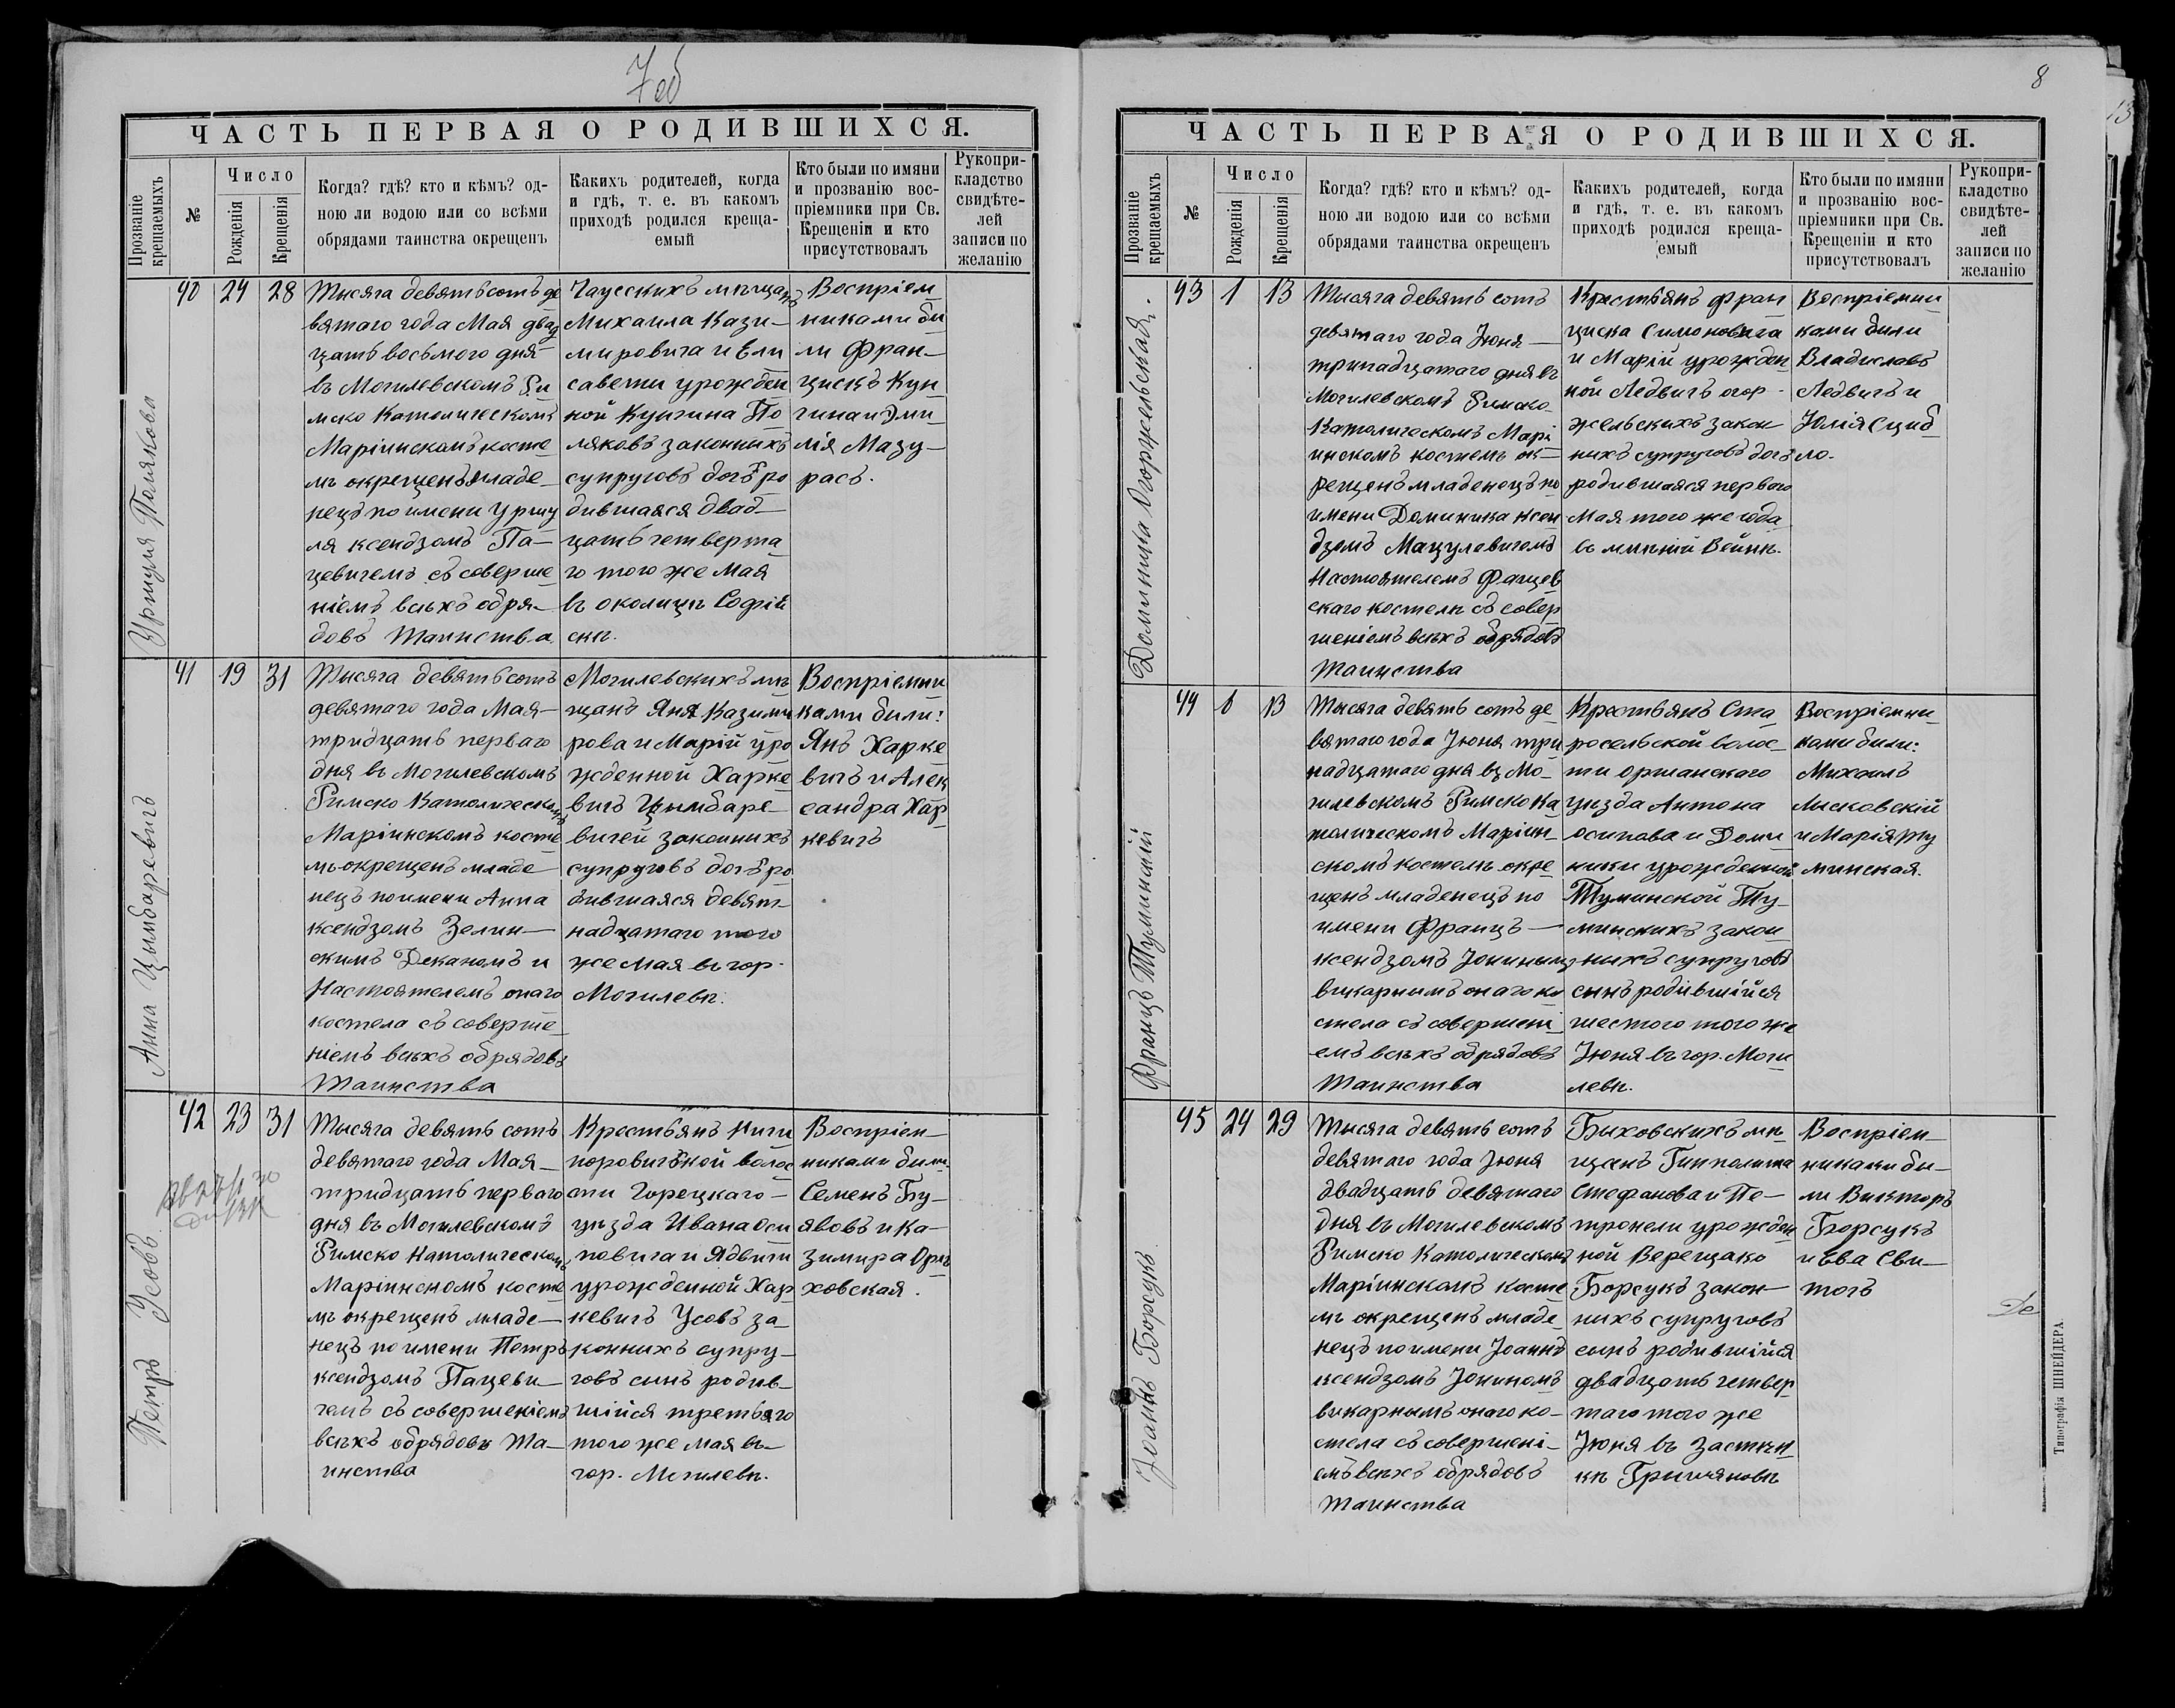 7об
ЧАСТЬ ПЕРВАЯ О РОДИВШИХСЯ.
Прозваніе крещаемыхъ
№
Число
Рожденія
Крещенія
Когда? гдѣ? кто и кѣмъ? од-
ною ли водою или со всѣми
обрядами таинства окрещенъ
Какихъ родителей, когда
и гдѣ, т. е. въ какомъ
приходѣ родился креща-
емый
Кто были по имяни
и прозванію вос-
пріемники при Св.
Крещеніи и кто
присутствовалъ
Рукопри-
кладство
свидѣте-
лей
записи по
желанію
Уршуля Полякова
40
24
28
Тысяча девятьсотъ де
вятаго года Мая двад
цать восьмого дня
въ Могилевскомъ Ри
мско Католическомъ
Маріинскомъ косте
лѣ окрещенъ младе
нецъ по имени Уршу
ля ксендзомъ Па-
цевичемъ съ соверше
ніемъ всѣхъ обря-
довъ Таинства
Чаусскихъ мѣщанъ
Михаила Кази-
мировича и Ели
саветы урожден
ной Кунгина По
ляковъ законныхъ
супруговъ дочь ро
дившаяся двад-
цать четверта
го того же Мая
въ околицѣ Софій
скѣ.
Воспріем
никами бы
ли Фран-
цискъ Кун
гина и Эми
лія Мазу-
расъ.
Анна Цымбаревичъ
41
19
31
Тысяча девятьсотъ
девятаго года Мая
тридцать перваго
дня въ Могилевскомъ
Римско Католическомъ
Маріинскомъ косте
лѣ окрещенъ младе
нецъ по имени Анна
ксендзомъ Зелин-
скимъ Деканомъ и
Настоятелемъ онаго
костела съ соверше
ніемъ всѣхъ обрядовъ
Таинства
Могилевскихъ мѣ
щанъ Яна Казими
рова и Маріи уро
жденной Харке
вичъ Цымбаре
вичей законныхъ
супруговъ дочь ро
дившаяся девят-
надцатаго того
же Мая въ гор.
Могилевѣ.
Воспріемни
ками были:
Янъ Харке
вичъ и Алек
сандра Хар
кевичъ
Петръ Усовъ
42
23
31
Тысяча девять сотъ
девятаго года Мая
тридцать перваго
дня въ Могилевскомъ
Римско Католическомъ
Маріинскомъ косте
лѣ окрещенъ младе-
нецъ по имени Петръ
ксендзомъ Пацеви-
чемъ съ совершеніемъ
всѣхъ обрядовъ Та-
инства
Крестьянъ Ничи
поровичской волос
ти Горецкаго
уѣзда Ивана Оси
повича и Ядвиги
урожденной Хар
кевичъ Усовъ за-
конныхъ супру-
говъ сынъ родив-
шійся третьяго
того же Мая въ
гор. Могилевѣ.
Воспріем-
никами были
Семенъ Бу-
яновъ и Ка-
зимира Орѣ
ховская.
8
ЧАСТЬ ПЕРВАЯ О РОДИВШИХСЯ.
Прозваніе крещаемыхъ
№
Число
Рожденія
Крещенія
Когда? гдѣ? кто и кѣмъ? од-
ною ли водою или со всѣми
обрядами таинства окрещенъ
Какихъ родителей, когда
и гдѣ, т. е. въ какомъ
приходѣ родился креща-
емый
Кто были по имяни
и прозванію вос-
пріемники при Св.
Крещеніи и кто
присутствовалъ
Рукопри-
кладство
свидѣте-
лей
записи по
желанію
Доминика Огоржельская.
43
1
13
Тысяча девять сотъ
девятаго года Іюня
тринадцатаго дня въ
Могилевскомъ Римско
Католическомъ Марі
инскомъ костелѣ ок-
рещенъ младенецъ по
имени Доминика ксен
дзомъ Мацулевичемъ
Настоятелемъ Фащев
скаго костела съ совер
шеніемъ всѣхъ обрядовъ
Таинства
Крестьянъ Фран
циска Симоновича
и Маріи урожден
ной Ледвигъ Огор-
жельскихъ закон
ныхъ супруговъ дочь
родившаяся перваго
Мая того же года
въ имѣніи Вейнѣ.
Воспріемни
ками были
Владиславъ
Ледвигъ и
Юлія Сциб
ло.
Францъ Туминскій
44
6
13
Тысяча девять сотъ де
вятаго года Іюня три
надцатаго дня въ Мо-
гилевскомъ Римско Ка
толическомъ Маріин-
скомъ костелѣ окре
щенъ младенецъ по
имени Францъ
ксендзомъ Іониномъ
викарнымъ онаго ко
стела съ совершені
емъ всѣхъ обрядовъ
Таинства
Крестьянъ Ста
росельской волос
ти Оршанскаго
уѣзда Антона
Осипова и Доми
ники урожденной
Туминской Ту-
минскихъ закон
ныхъ супруговъ
сынъ родившійся
шестого того же
Іюня въ гор. Моги
левѣ.
Воспріемни
ками были:
Михаилъ
Лисковскій
и Марія Ту
минская.
Іоаннъ Борсукъ
45
24
29
Тысяча девять сотъ
девятаго года Іюня
двадцать девятаго
дня въ Могилевскомъ
Римско Католическомъ
Маріинскомъ косте
лѣ окрещенъ младе
нецъ по имени Іоаннъ
ксендзомъ Іониномъ
викарнымъ онаго ко-
стела съ совершені-
емъ всѣхъ обрядовъ
Таинства
Быховскихъ мѣ
щанъ Гипполита
Стефанова и Пе-
тронели урожден
ной Верещако
Борсукъ закон-
ныхъ супруговъ
сынъ родившійся
двадцать четвер
таго того же
Іюня въ застѣн
кѣ Гришановѣ
Воспріем-
никами бы-
ли Викторъ
Борсукъ
и Ева Сви-
тогъ
Типографія ШНЕЙДЕРА.